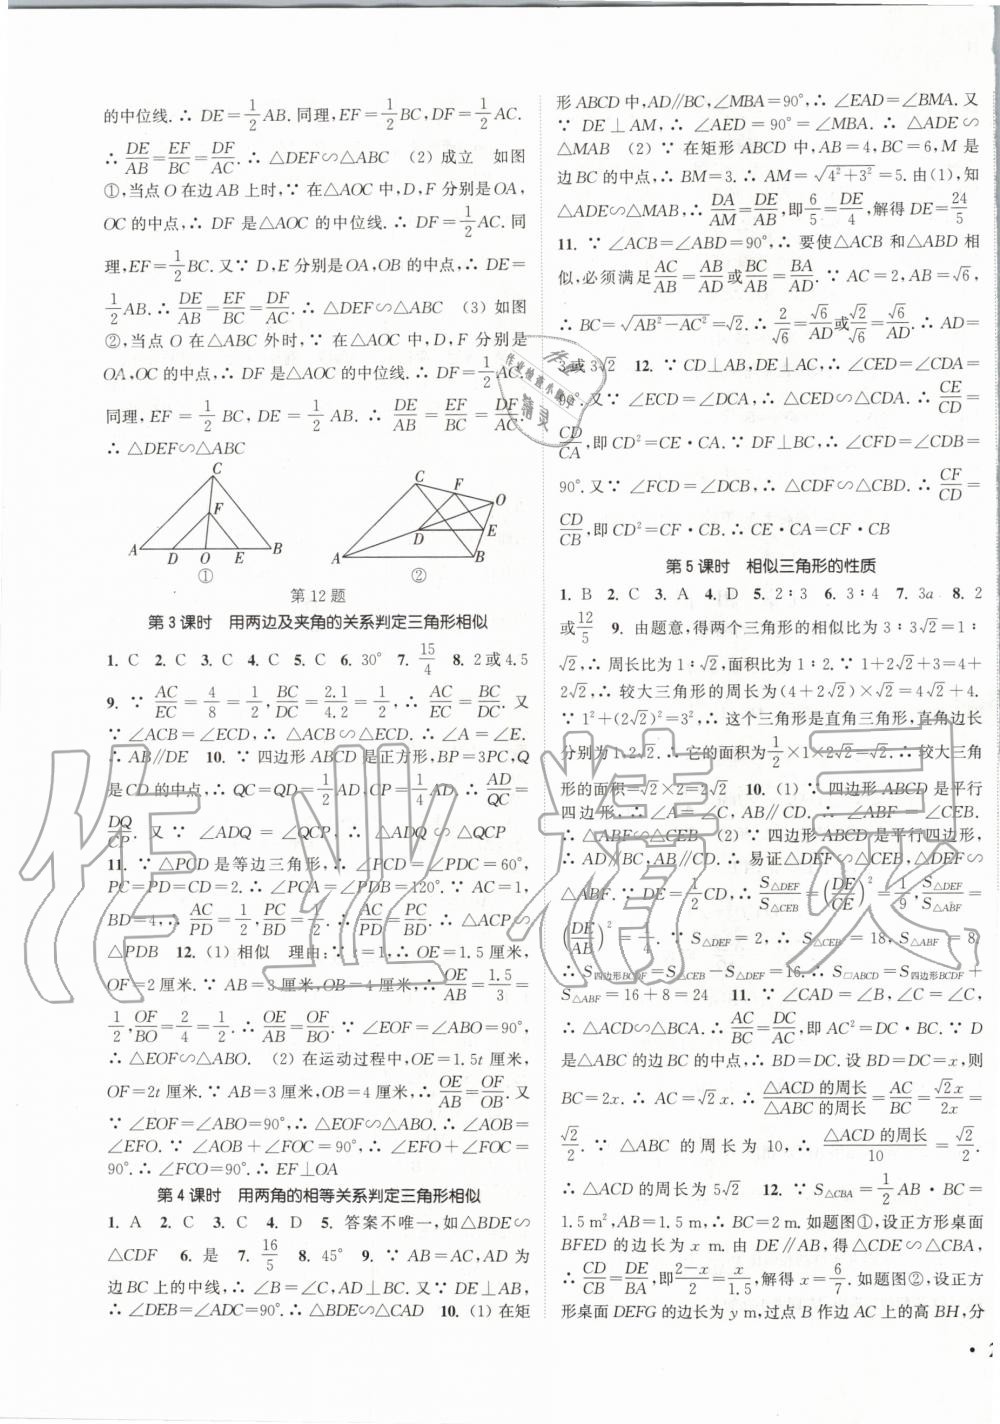 的中位线.∴ DE=1/2AB.同理,EF=1/2BC,DF=1/2AC.
∴ DE/AB=EF/BC=DF/AC.∴ △DEF∽△ABC (2) 成立 如图
①,当点O在边AB上时,∵ 在△AOC中,D,F分别是OA,
OC的中点,∴ DF是△AOC的中位线.∴ DF=1/2AC.同
理,EF=1/2BC.又∵ D,E分别是OA,OB的中点,∴ DE=
1/2AB.∴ DE/AB=EF/BC=DF/AC.∴ △DEF∽△ABC (3) 如图
②,当点O在△ABC外时,∵ 在△AOC中,D,F分别是
OA,OC的中点,∴ DF是△AOC的中位线.∴ DF=1/2AC.
同理,EF=1/2BC,DE=1/2AB.∴ DE/AB=EF/BC=DF/AC.
∴ △DEF∽△ABC
C
F
A D O E B
①
C F O
D E
A B
②
第12题
第3课时 用两边及夹角的关系判定三角形相似
1. C 2. C 3. C 4. C 5. C 6. 30° 7. 15/4 8. 2或4.5
9. ∵ AC/EC=4/8=1/2,BC/DC=2.1/4.2=1/2,∴ AC/EC=BC/DC.又
∵ ∠ACB=∠ECD,∴ △ACB∽△ECD.∴ ∠A=∠E.
∴ AB∥DE 10. ∵ 四边形ABCD是正方形,BP=3PC,Q
是CD的中点,∴ QC=QD=1/2AD,CP=1/4AD.∴ AD/QC=
DQ/CP.又∵ ∠ADQ=∠QCP,∴ △ADQ∽△QCP
11. ∵ △PCD是等边三角形,∴ ∠PCD=∠PDC=60°,
PC=PD=CD=2.∴ ∠PCA=∠PDB=120°.∵ AC=1,
BD=4,∴ AC/PD=1/2,PC/BD=1/2.∴ AC/PD=PC/BD.∴ △ACP∽
△PDB 12. (1) 相似 理由:∵ t=1,∴ OE=1.5厘米,
OF=2厘米.∵ AB=3厘米,OB=4厘米,∴ OE/AB=1.5/3=
1/2,OF/BO=2/4=1/2.∴ OE/AB=OF/BO.∵ ∠EOF=∠ABO=90°,
∴ △EOF∽△ABO. (2) 在运动过程中,OE=1.5t厘米,
OF=2t厘米.∵ AB=3厘米,OB=4厘米,∴ OE/AB=OF/OB.又
∵ ∠EOF=∠ABO=90°,∴ △EOF∽△ABO.∴ ∠AOB=
∠EFO.∵ ∠AOB+∠FOC=90°,∴ ∠EFO+∠FOC=
90°.∴ ∠FCO=90°.∴ EF⊥OA
第4课时 用两角的相等关系判定三角形相似
1. A 2. C 3. C 4. D 5. 答案不唯一,如△BDE∽
△CDF 6. 是 7. 16/5 8. 45° 9. ∵ AB=AC,AD为
边BC上的中线,∴ ∠B=∠C,AD⊥BC.又∵ DE⊥AB,
∴ ∠DEB=∠ADC=90°.∴ △BDE∽△CAD 10. (1) 在矩
形ABCD中,AD∥BC,∠MBA=90°,∴ ∠EAD=∠BMA.又
∵ DE⊥AM,∴ ∠AED=90°=∠MBA.∴ △ADE∽
△MAB (2) ∵ 在矩形ABCD中,AB=4,BC=6,M是
边BC的中点,∴ BM=3.∴ AM=√(4²+3²)=5.由(1),知
△ADE∽△MAB,∴ DA/AM=DE/AB,即6/5=DE/4,解得DE=24/5
11. ∵ ∠ACB=∠ABD=90°,∴ 要使△ACB和△ABD相
似,必须满足AC/AB=AB/AD或BC/AB=BA/AD.∵ AC=2,AB=√6,
∴ BC=√(AB²-AC²)=√2.∴ 2/√6=√6/AD或√2/√6=√6/AD.∴ AD=
3或3√2 12. ∵ CD⊥AB,DE⊥AC,∴ ∠CED=∠CDA=
90°.又∵ ∠ECD=∠DCA,∴ △CED∽△CDA.∴ CE/CD=
CD/CA,即CD²=CE·CA.∵ DF⊥BC,∴ ∠CFD=∠CDB=
90°.又∵ ∠FCD=∠DCB,∴ △CFD∽△CDB.∴ CF/CD=
CD/CB,即CD²=CF·CB.∴ CE·CA=CF·CB
第5课时 相似三角形的性质
1. B 2. C 3. A 4. D 5. 2∶3 6. 3∶4 7. 3a 8. 2
或12/5 9. 由题意,得两个三角形的相似比为3∶3√2=1∶
√2,∴ 周长比为1∶√2,面积比为1∶2.∵ 1+2√2+3=4+
2√2,∴ 较大三角形的周长为(4+2√2)×√2=4√2+4.
∵ 1²+(2√2)²=3²,∴ 这个三角形是直角三角形,直角边长
分别为1,2√2.∴ 它的面积为1/2×1×2√2=√2.∴ 较大三角
形的面积=√2×2=2√2 10. (1) ∵ 四边形ABCD是平行
四边形,∴ ∠A=∠C,AB∥CD.∴ ∠ABF=∠CEB.
∴ △ABF∽△CEB (2) ∵ 四边形ABCD是平行四边形,
∴ AD∥BC,AB∥CD.∴ 易证△DEF∽△CEB,△DEF∽
△ABF.∵ DE=1/2CD,∴ S△DEF/S△CEB=(DE/CE)²=1/9,S△DEF/S△ABF=
(DE/AB)²=1/4.∵ S△DEF=2,∴ S△CEB=18,S△ABF=8.
∴ S四边形BCDF=S△CEB-S△DEF=16.∴ S□ABCD=S四边形BCDF+
S△ABF=16+8=24 11. ∵ ∠CAD=∠B,∠C=∠C,
∴ △ACD∽△BCA.∴ AC/BC=DC/AC,即AC²=DC·BC.∵ D
是△ABC的边BC的中点,∴ BD=DC.设BD=DC=x,则
BC=2x.∴ AC=√2x.∴ △ACD的周长/△ABC的周长=AC/BC=√2x/2x=
√2/2.∵ △ABC的周长为10,∴ △ACD的周长/10=√2/2.
∴ △ACD的周长为5√2 12. ∵ S△CBA=1/2AB·BC=
1.5 m²,AB=1.5 m,∴ BC=2 m.如题图①,设正方形桌面
BFED的边长为x m.由DE∥AB,得△CDE∽△CBA,
∴ CD/CB=DE/BA,即(2-x)/2=x/1.5,解得x=6/7.如题图②,设正方
形桌面DEFG的边长为y m,过点B作边AC上的高BH,分
作业精灵